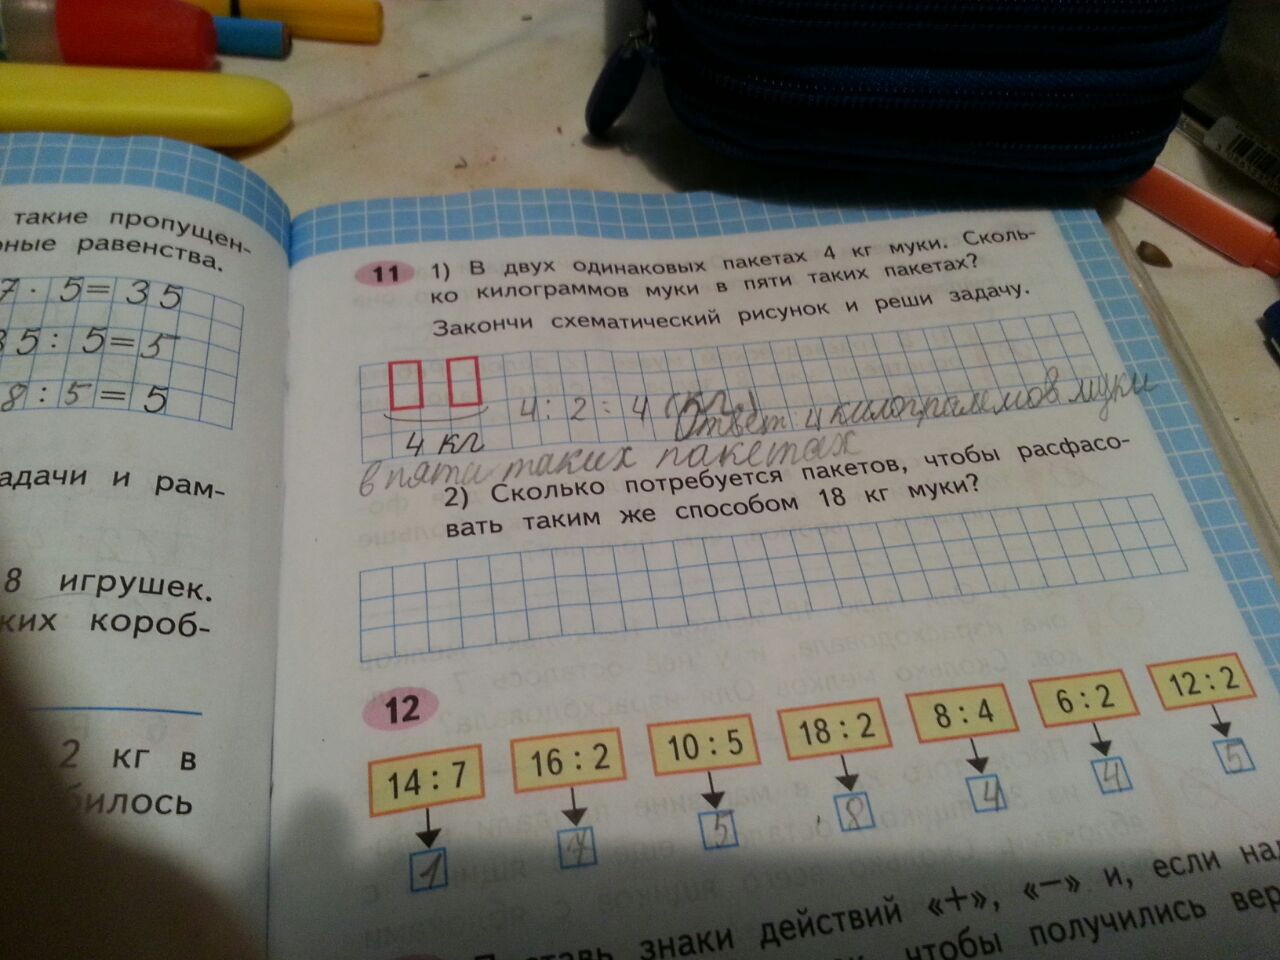 такие пропущен-
рные равенства.
7 · 5 = 35
35 : 5 = 5
8 : 5 = 5
адачи и рам-
8 игрушек.
ких короб-
2 кг в
билось
11 1) В двух одинаковых пакетах 4 кг муки. Сколь-
ко килограммов муки в пяти таких пакетах?
Закончи схематический рисунок и реши задачу.
4 : 2 = 4 (кг)
4 кг
Ответ 4 килограммов муки
в пяти таких пакетах
2) Сколько потребуется пакетов, чтобы расфасо-
вать таким же способом 18 кг муки?
12
14 : 7 16 : 2 10 : 5 18 : 2 8 : 4 6 : 2 12 : 2
1 7 5 8 4 4 5
знаки действий «+», «−» и, если
чтобы получились вер